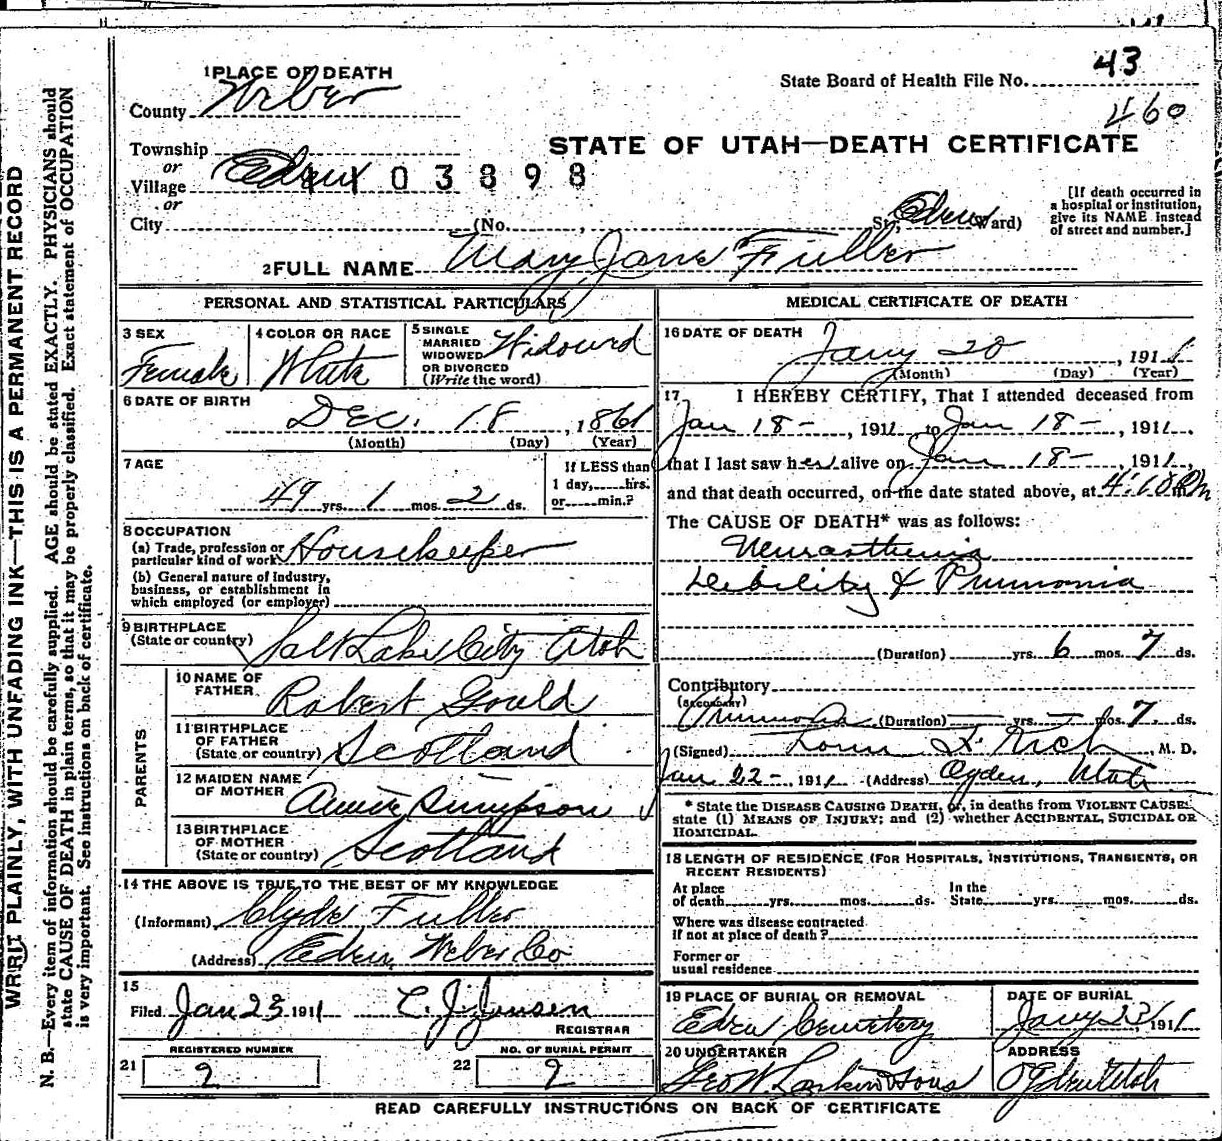 WRITE PLAINLY, WITH UNFADING INK—THIS IS A PERMANENT RECORD
N. B.—Every item of information should be carefully supplied. AGE should be stated EXACTLY. PHYSICIANS should
state CAUSE OF DEATH in plain terms, so that it may be properly classified. Exact statement of OCCUPATION
is very important. See instructions on back of certificate.
1 PLACE OF DEATH
County Weber
State Board of Health File No. 43
460
STATE OF UTAH—DEATH CERTIFICATE
Township
or
Village Eden
03898
or
City (No. , St., Eden Ward)
[If death occurred in
a hospital or institution,
give its NAME instead
of street and number.]
2 FULL NAME Mary Jane Fuller
PERSONAL AND STATISTICAL PARTICULARS
3 SEX
Female
4 COLOR OR RACE
White
5 SINGLE
MARRIED
WIDOWED
OR DIVORCED
(Write the word)
Widowed
6 DATE OF BIRTH
Dec. 18, 1861
(Month) (Day) (Year)
7 AGE
49 yrs. 1 mos. 2 ds.
If LESS than
1 day, hrs.
or min.?
8 OCCUPATION
(a) Trade, profession or
particular kind of work Housekeeper
(b) General nature of industry,
business, or establishment in
which employed (or employer)
9 BIRTHPLACE
(State or country) Salt Lake City Utah
PARENTS
10 NAME OF
FATHER Robert Gould
11 BIRTHPLACE
OF FATHER
(State or country) Scotland
12 MAIDEN NAME
OF MOTHER Simpson
13 BIRTHPLACE
OF MOTHER
(State or country) Scotland
14 THE ABOVE IS TRUE TO THE BEST OF MY KNOWLEDGE
(Informant) Clyde Fuller
(Address) Eden, Weber Co
15
Filed Jan 23 1911 C. J. Jensen
REGISTRAR
21 REGISTERED NUMBER
2
22 NO. OF BURIAL PERMIT
2
MEDICAL CERTIFICATE OF DEATH
16 DATE OF DEATH
Jany 20, 1911
(Month) (Day) (Year)
17 I HEREBY CERTIFY, That I attended deceased from
Jan 18 -, 1911, to Jan 18 -, 1911,
that I last saw her alive on Jan 18 -, 1911,
and that death occurred, on the date stated above, at 4:10 Pm
The CAUSE OF DEATH* was as follows:
Neurasthenia
Debility & Pneumonia
(Duration) yrs. 6 mos. 7 ds.
Contributory
(SECONDARY)
Pneumonia (Duration) yrs. mos. 7 ds.
(Signed) F. Rich, M. D.
Jan 22 - 1911 (Address) Ogden, Utah
* State the DISEASE CAUSING DEATH, or, in deaths from VIOLENT CAUSES
state (1) MEANS OF INJURY; and (2) whether ACCIDENTAL, SUICIDAL OR
HOMICIDAL.
18 LENGTH OF RESIDENCE (FOR HOSPITALS, INSTITUTIONS, TRANSIENTS, OR
RECENT RESIDENTS)
At place
of death yrs. mos. ds.
In the
State yrs. mos. ds.
Where was disease contracted
If not at place of death?
Former or
usual residence
19 PLACE OF BURIAL OR REMOVAL
Eden Cemetery
DATE OF BURIAL
Jany 23, 1911
20 UNDERTAKER
Geo W. Larkin & Sons
ADDRESS
Ogden Utah
READ CAREFULLY INSTRUCTIONS ON BACK OF CERTIFICATE